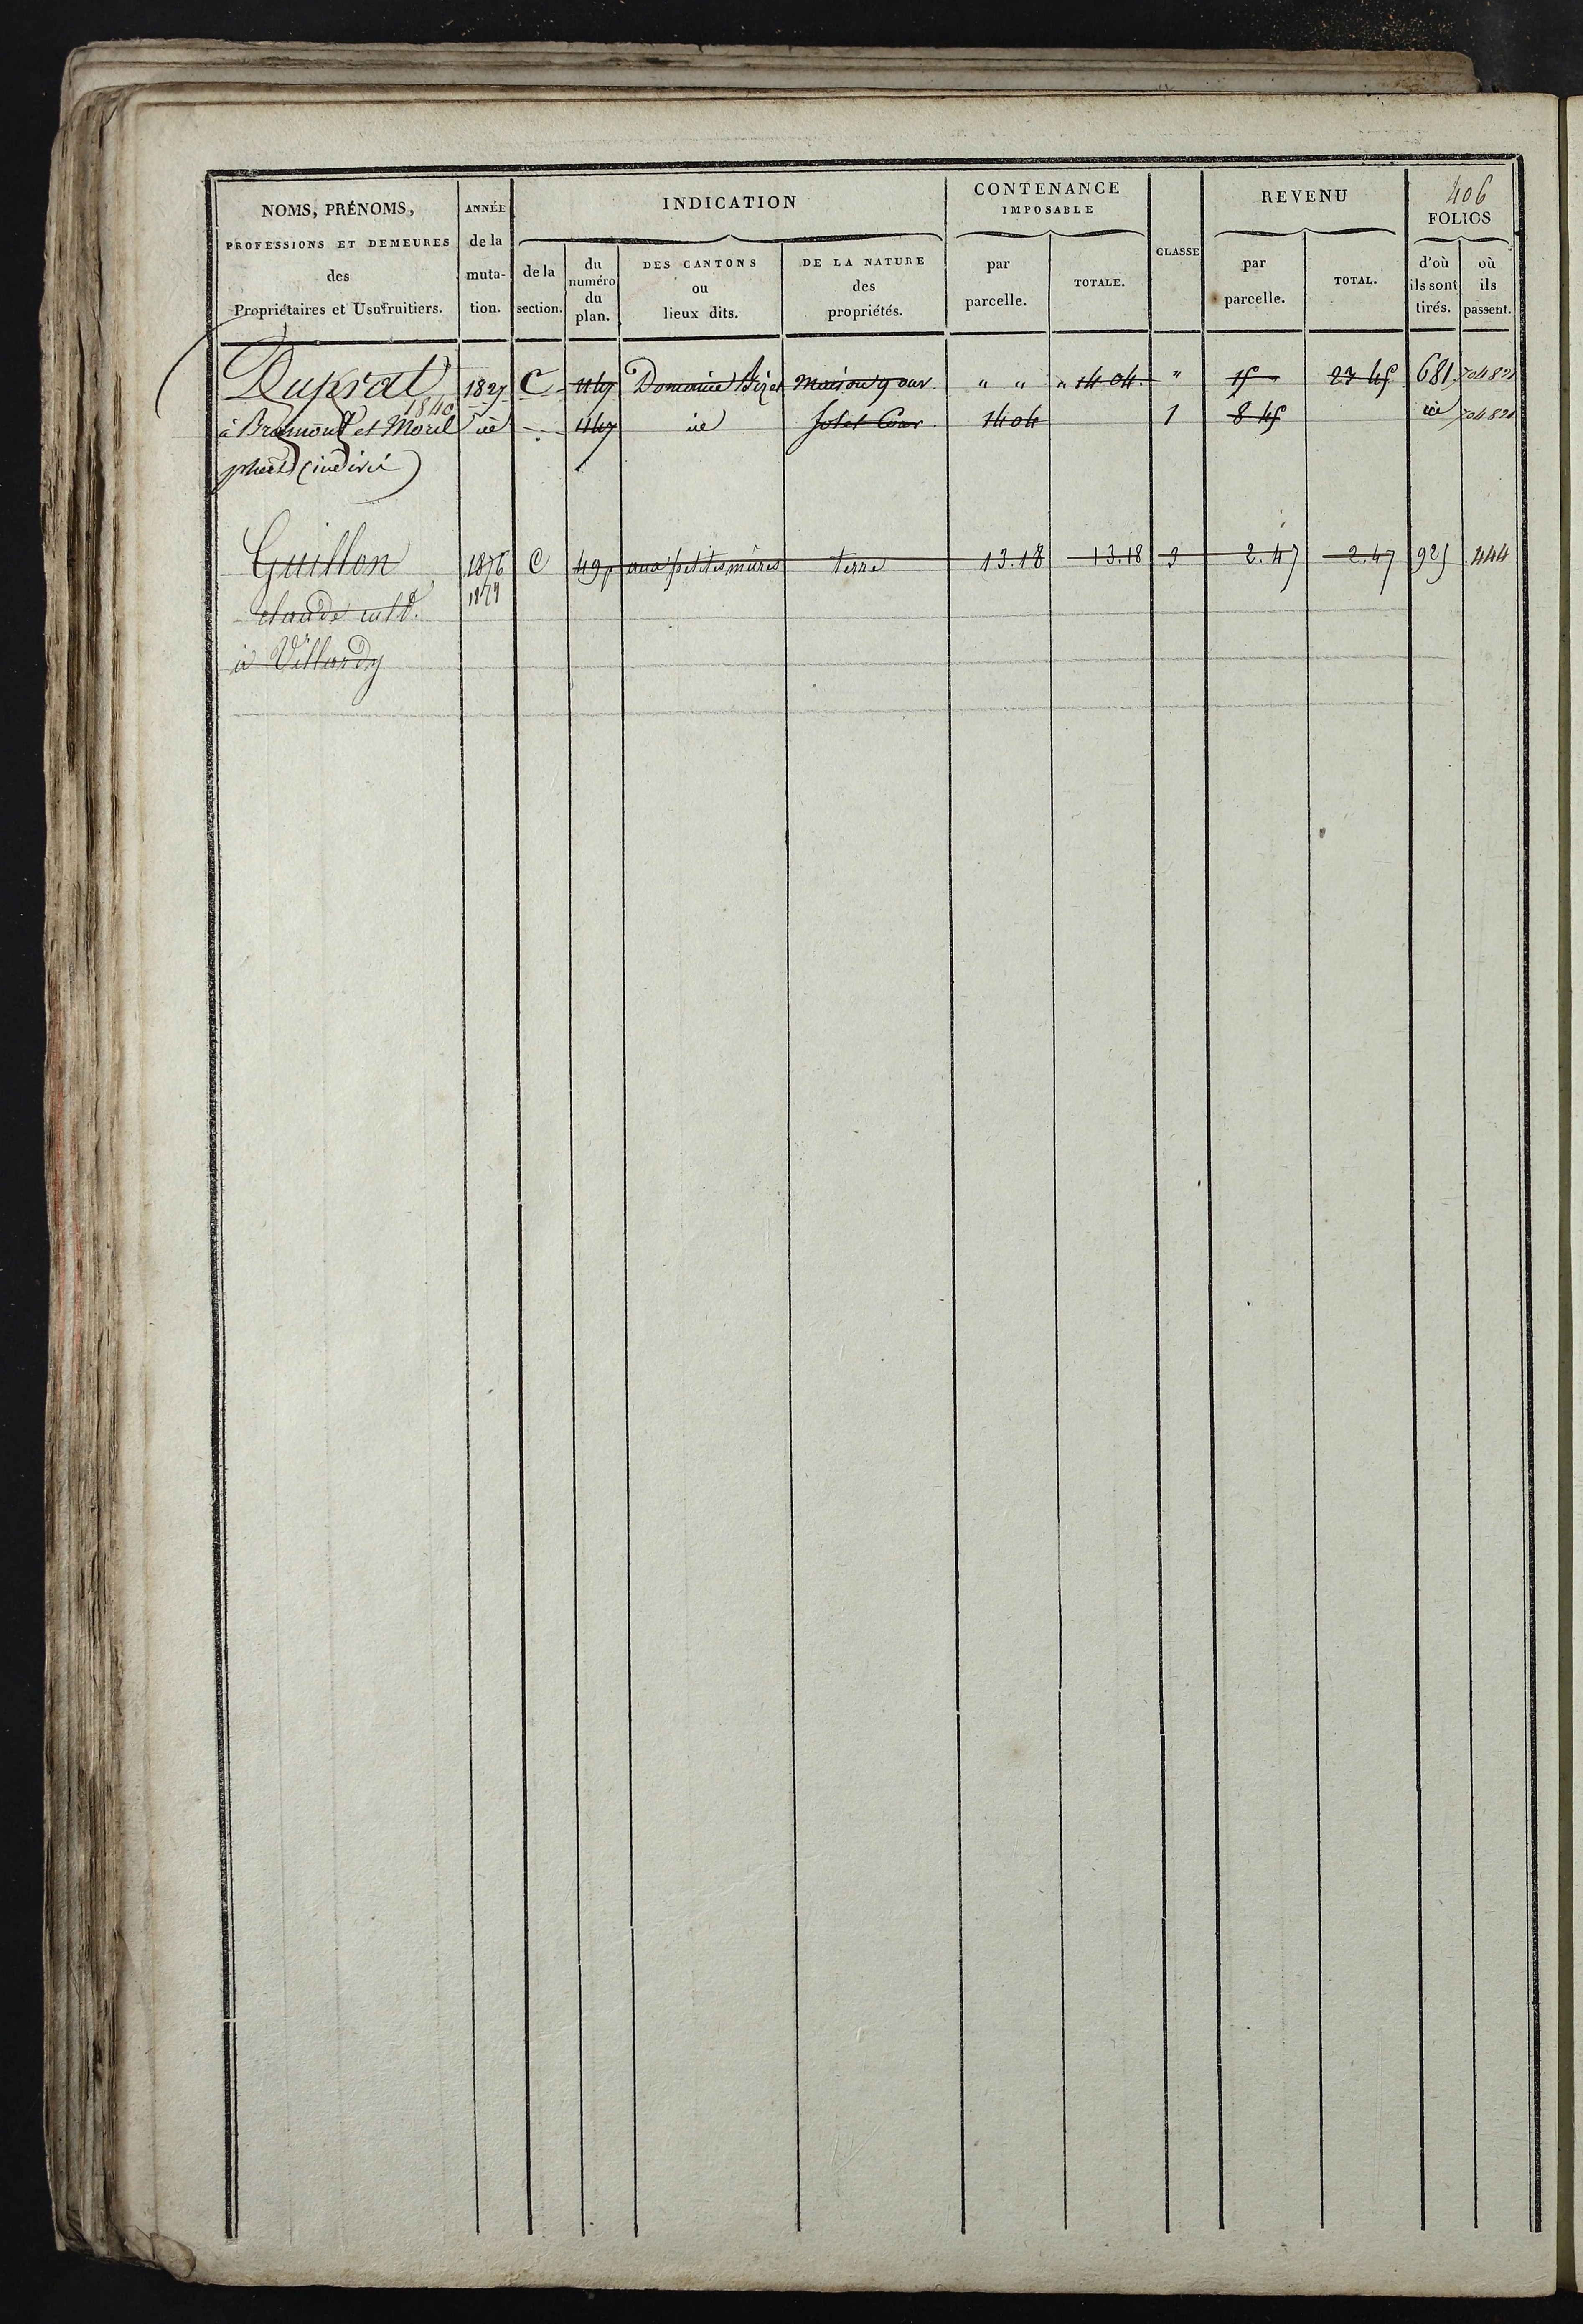 406
NOMS, PRÉNOMS, PROFESSIONS ET DEMEURES des Propriétaires et Usufruitiers.
ANNÉE de la muta- tion.
INDICATION
de la section.
du numéro du plan.
DES CANTONS ou lieux dits.
DE LA NATURE des propriétés.
CONTENANCE IMPOSABLE
par parcelle.
TOTALE.
CLASSE
REVENU
par parcelle.
TOTAL.
FOLIOS
d'où ils sont tirés.
où ils passent.
Duprat 1827 C 447 maison 9 ouv. " " " 14 04 " 15 " 23 45 681
1840
à et Morel 447 sol et Cour 14 04 1 8 45
(indivis)
Guillon 1876 C 49p aux petites mûres terre 13.18 13.18 3 2.47 2.47 925 444
1879
claude cult.
à Villardy